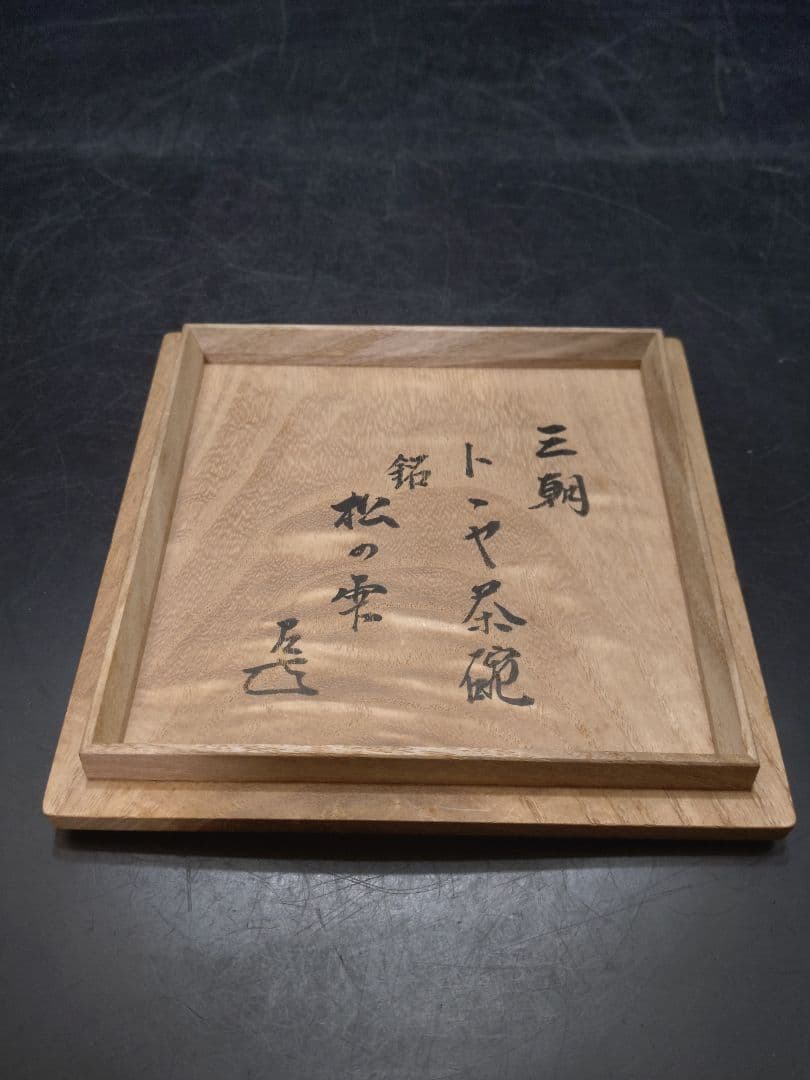 三朝
トヽヤ茶碗
銘
松の雫